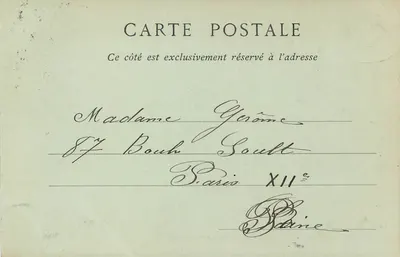 CARTE POSTALE
Ce côté est exclusivement réservé à l'adresse
Madame Gerôme
87 Boulv Soult
Paris XIIe
Seine